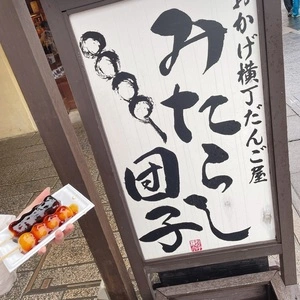 おかげ横丁だんご屋
みたらし
団子